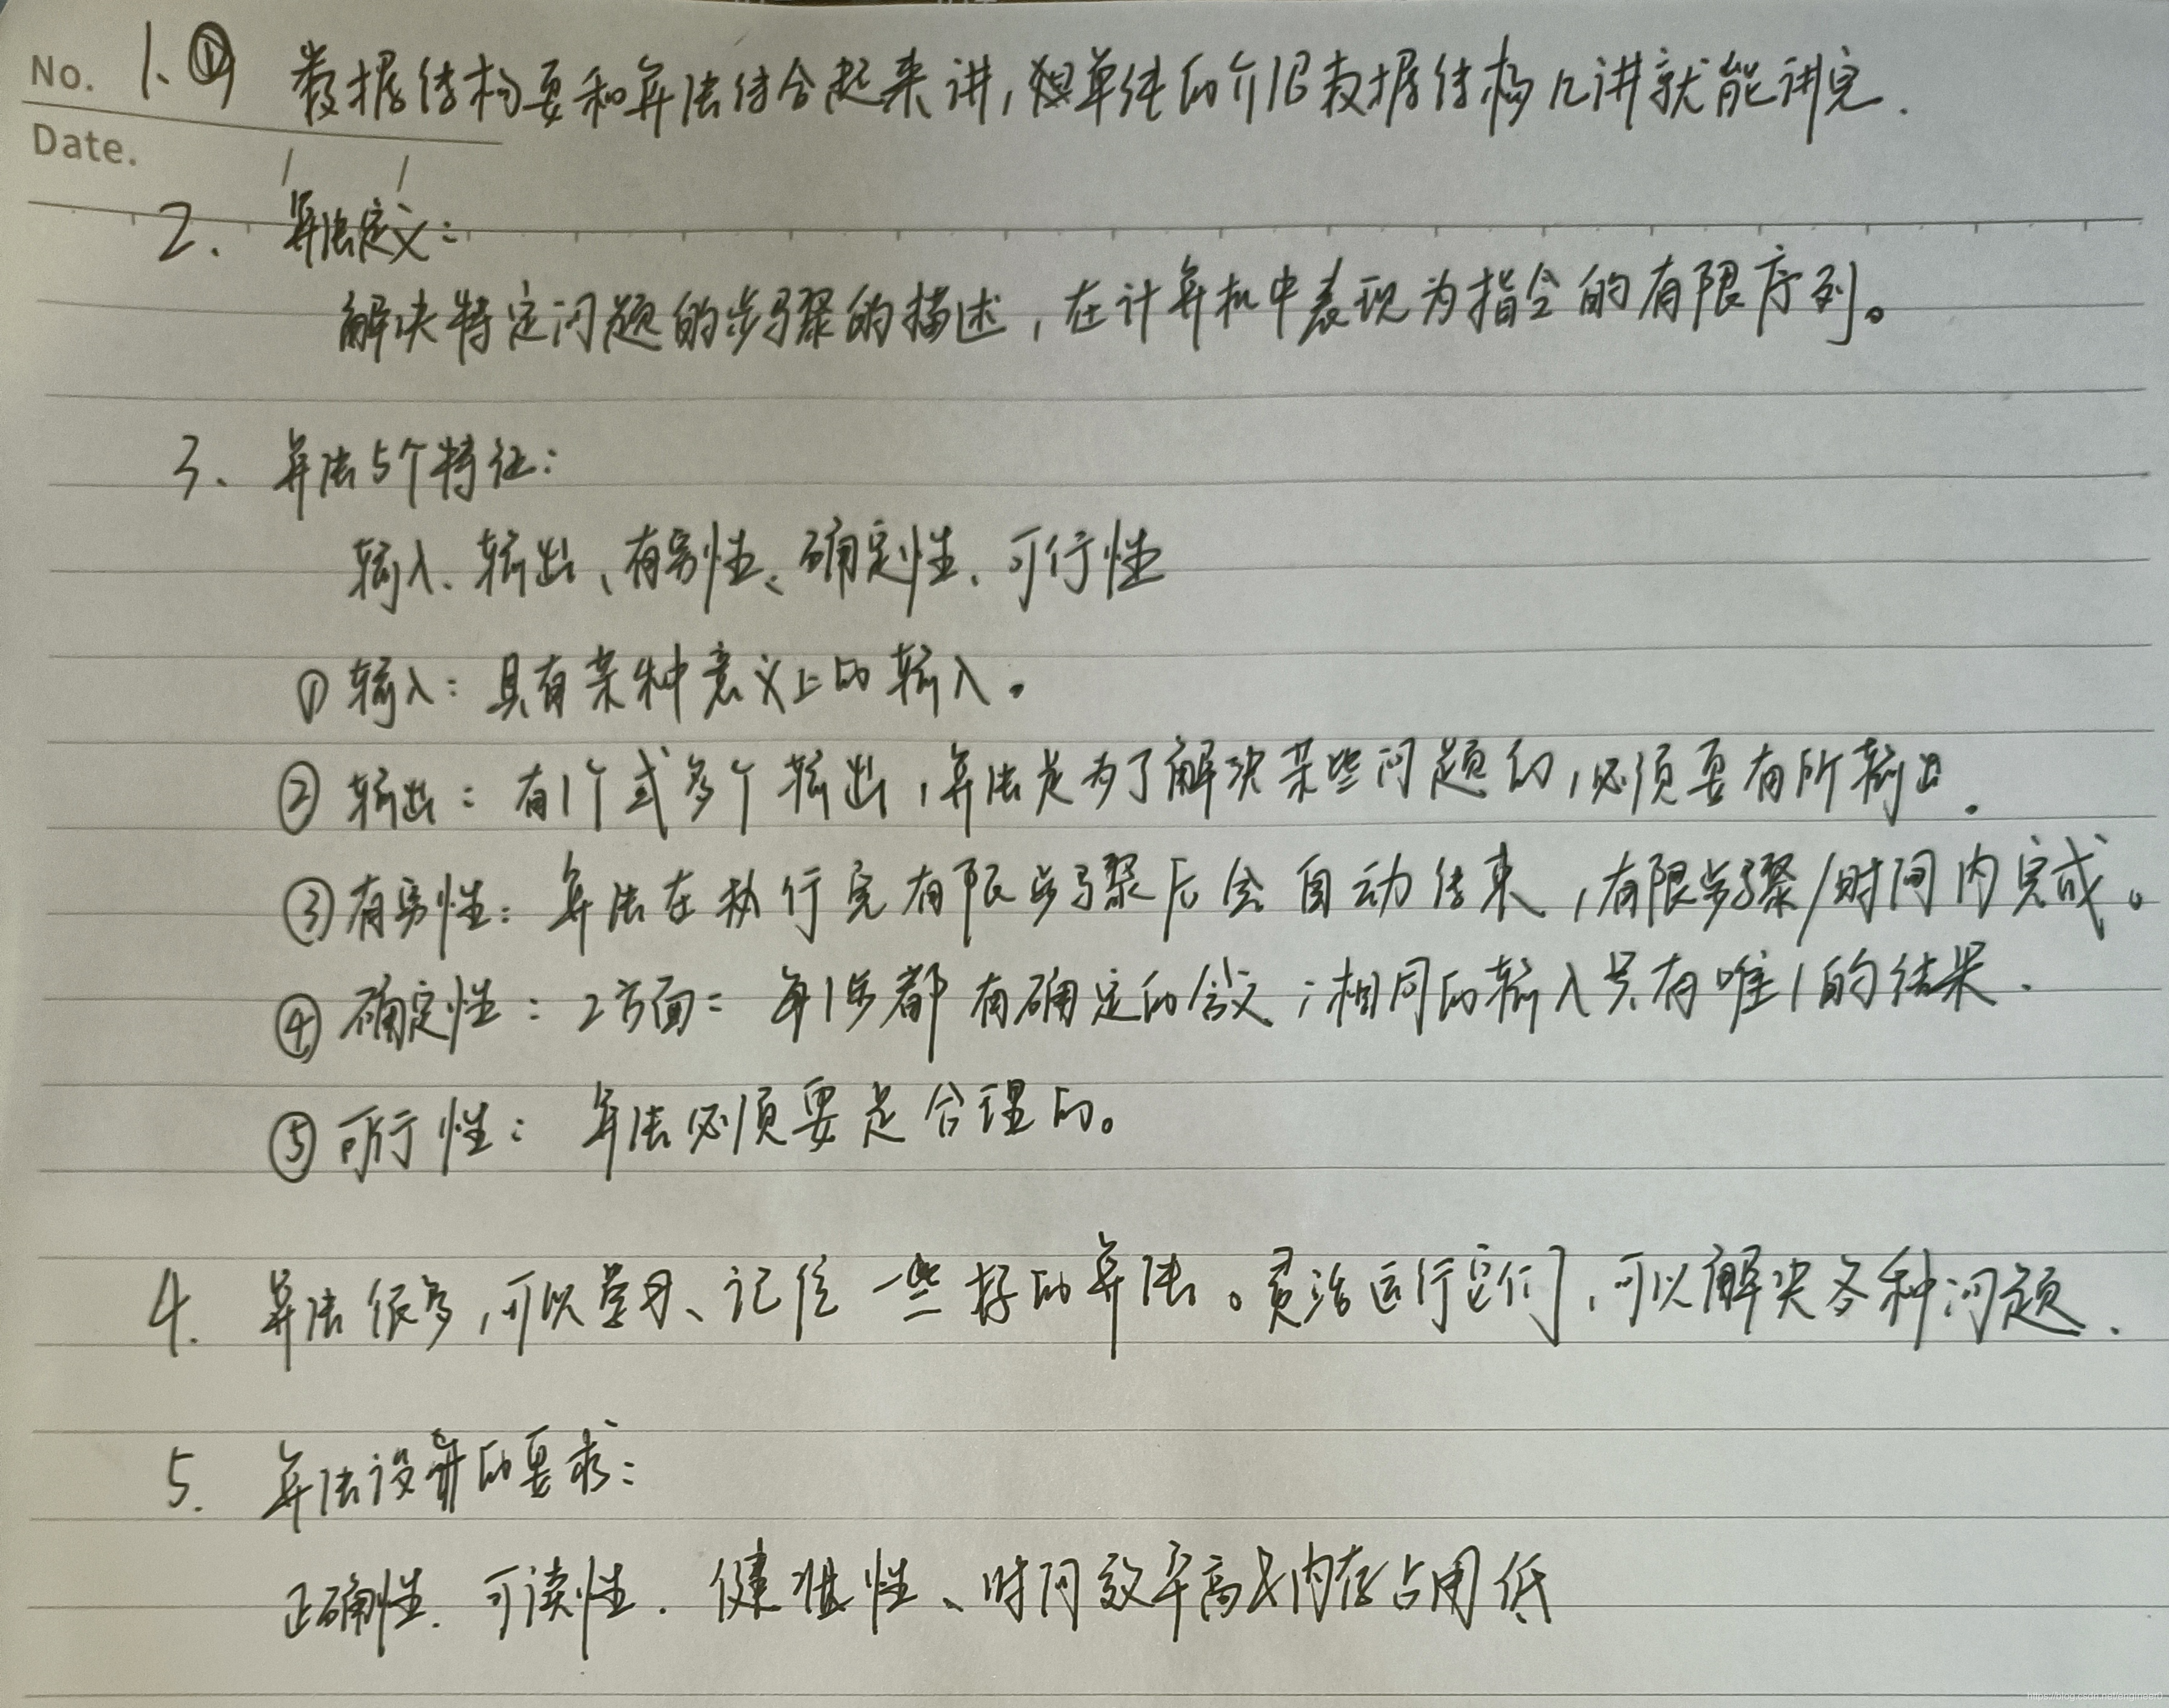 No. 1. ① 数据结构要和算法结合起来讲,单纯的介绍数据结构几讲就能讲完.
Date.
2. 算法定义:
解决特定问题的步骤的描述,在计算机中表现为指令的有限序列。
3、算法5个特征:
输入、输出、有穷性、确定性、可行性
① 输入:具有某种意义上的输入。
② 输出:有1个或多个输出,算法是为了解决某些问题的,必须要有所输出.
③ 有穷性:算法在执行完有限步骤后会自动结束,有限步骤/时间内完成。
④ 确定性:2方面:每1步都有确定的含义;相同的输入只有唯1的结果.
⑤ 可行性:算法必须要是合理的。
4. 算法很多,可以学习、记住一些好的算法。灵活运行它们,可以解决各种问题.
5. 算法设计的要求:
正确性.可读性.健壮性、时间效率高内存占用低